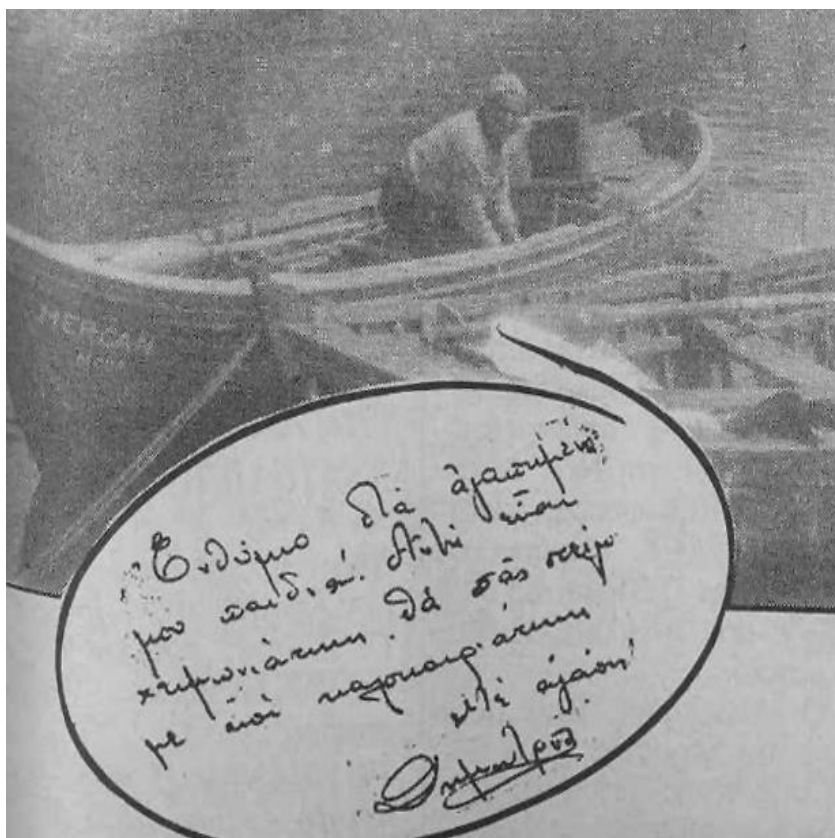 MERCAN
Ἐνθύμιο διά ἀγαπημένα
μου παιδιά. Αὐτή εἶναι
χειμωνιάτικη. Θά σᾶς στείλω
με καλοκαιριάτικη
μέ ἀγάπη